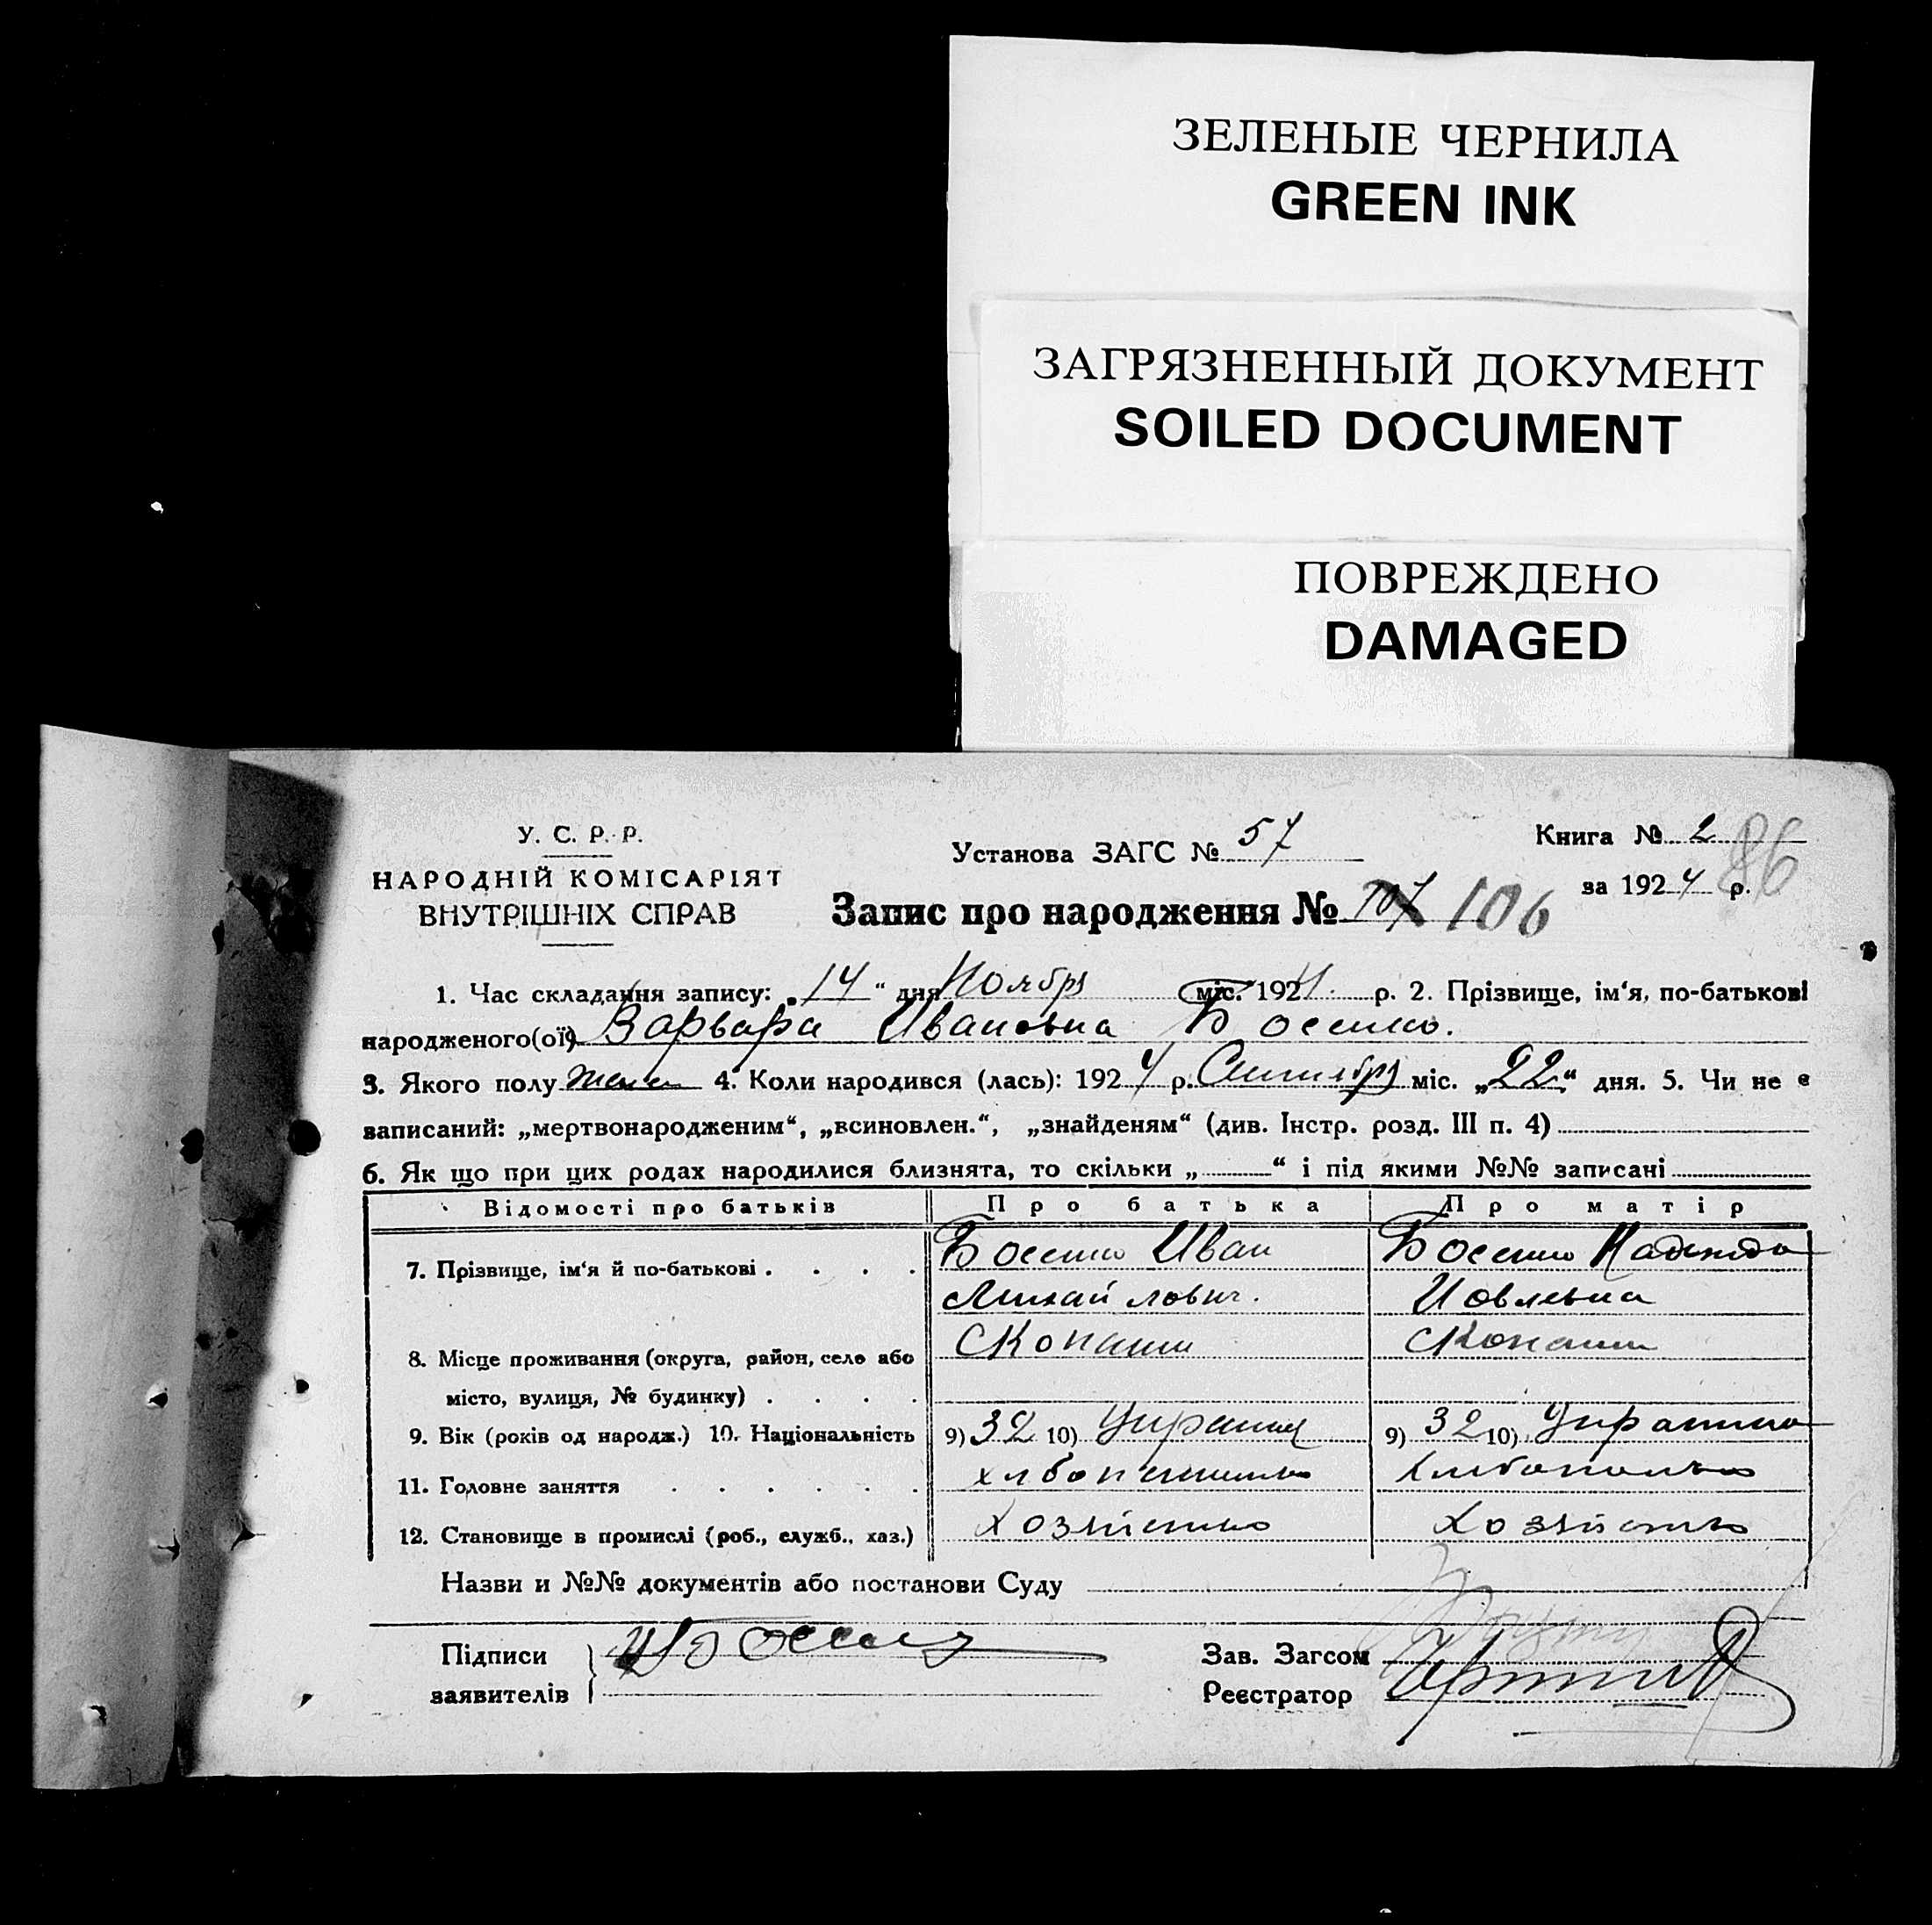 ЗЕЛЕНЫЕ ЧЕРНИЛА
GREEN INK
ЗАГРЯЗНЕННЫЙ ДОКУМЕНТ
SOILED DOCUMENT
ПОВРЕЖДЕНО
DAMAGED
У. С. Р. Р.
НАРОДНІЙ КОМІСАРІЯТ
ВНУТРІШНІХ СПРАВ
Установа ЗАГС № 57
Книга № 2 86
за 1924 р.
Запис про народження № 107 106
1. Час складання запису: „14“ дня Ноября міс. 1924 р. 2. Прізвище, ім‘я, по-батькові
народженого(ої) Варвара Ивановна
3. Якого полу 4. Коли народився (лась): 1924 р. Сентября міс. „22“ дня. 5. Чи не є
записаний: „мертвонародженим“, „всиновлен.“, „знайденям“ (див. Інстр. розд. III п. 4)
6. Як що при цих родах народилися близнята, то скільки „ “ і під якими №№ записані
Відомості про батьків Про батька Про матір
7. Прізвище, ім‘я й по-батькові . . . . Иван Надежда
Михайлович.
8. Місце проживання (округа, район, село або
місто, вулиця, № будинку) . . . .
9. Вік (років од народж.) 10. Національність 9) 32 10) 9) 32 10)
11. Головне заняття . . . . . .
12. Становище в промислі (роб., служб., хаз.)
Назви и №№ документів або постанови Суду
Підписи
заявителів
Зав. Загсом
Реєстратор